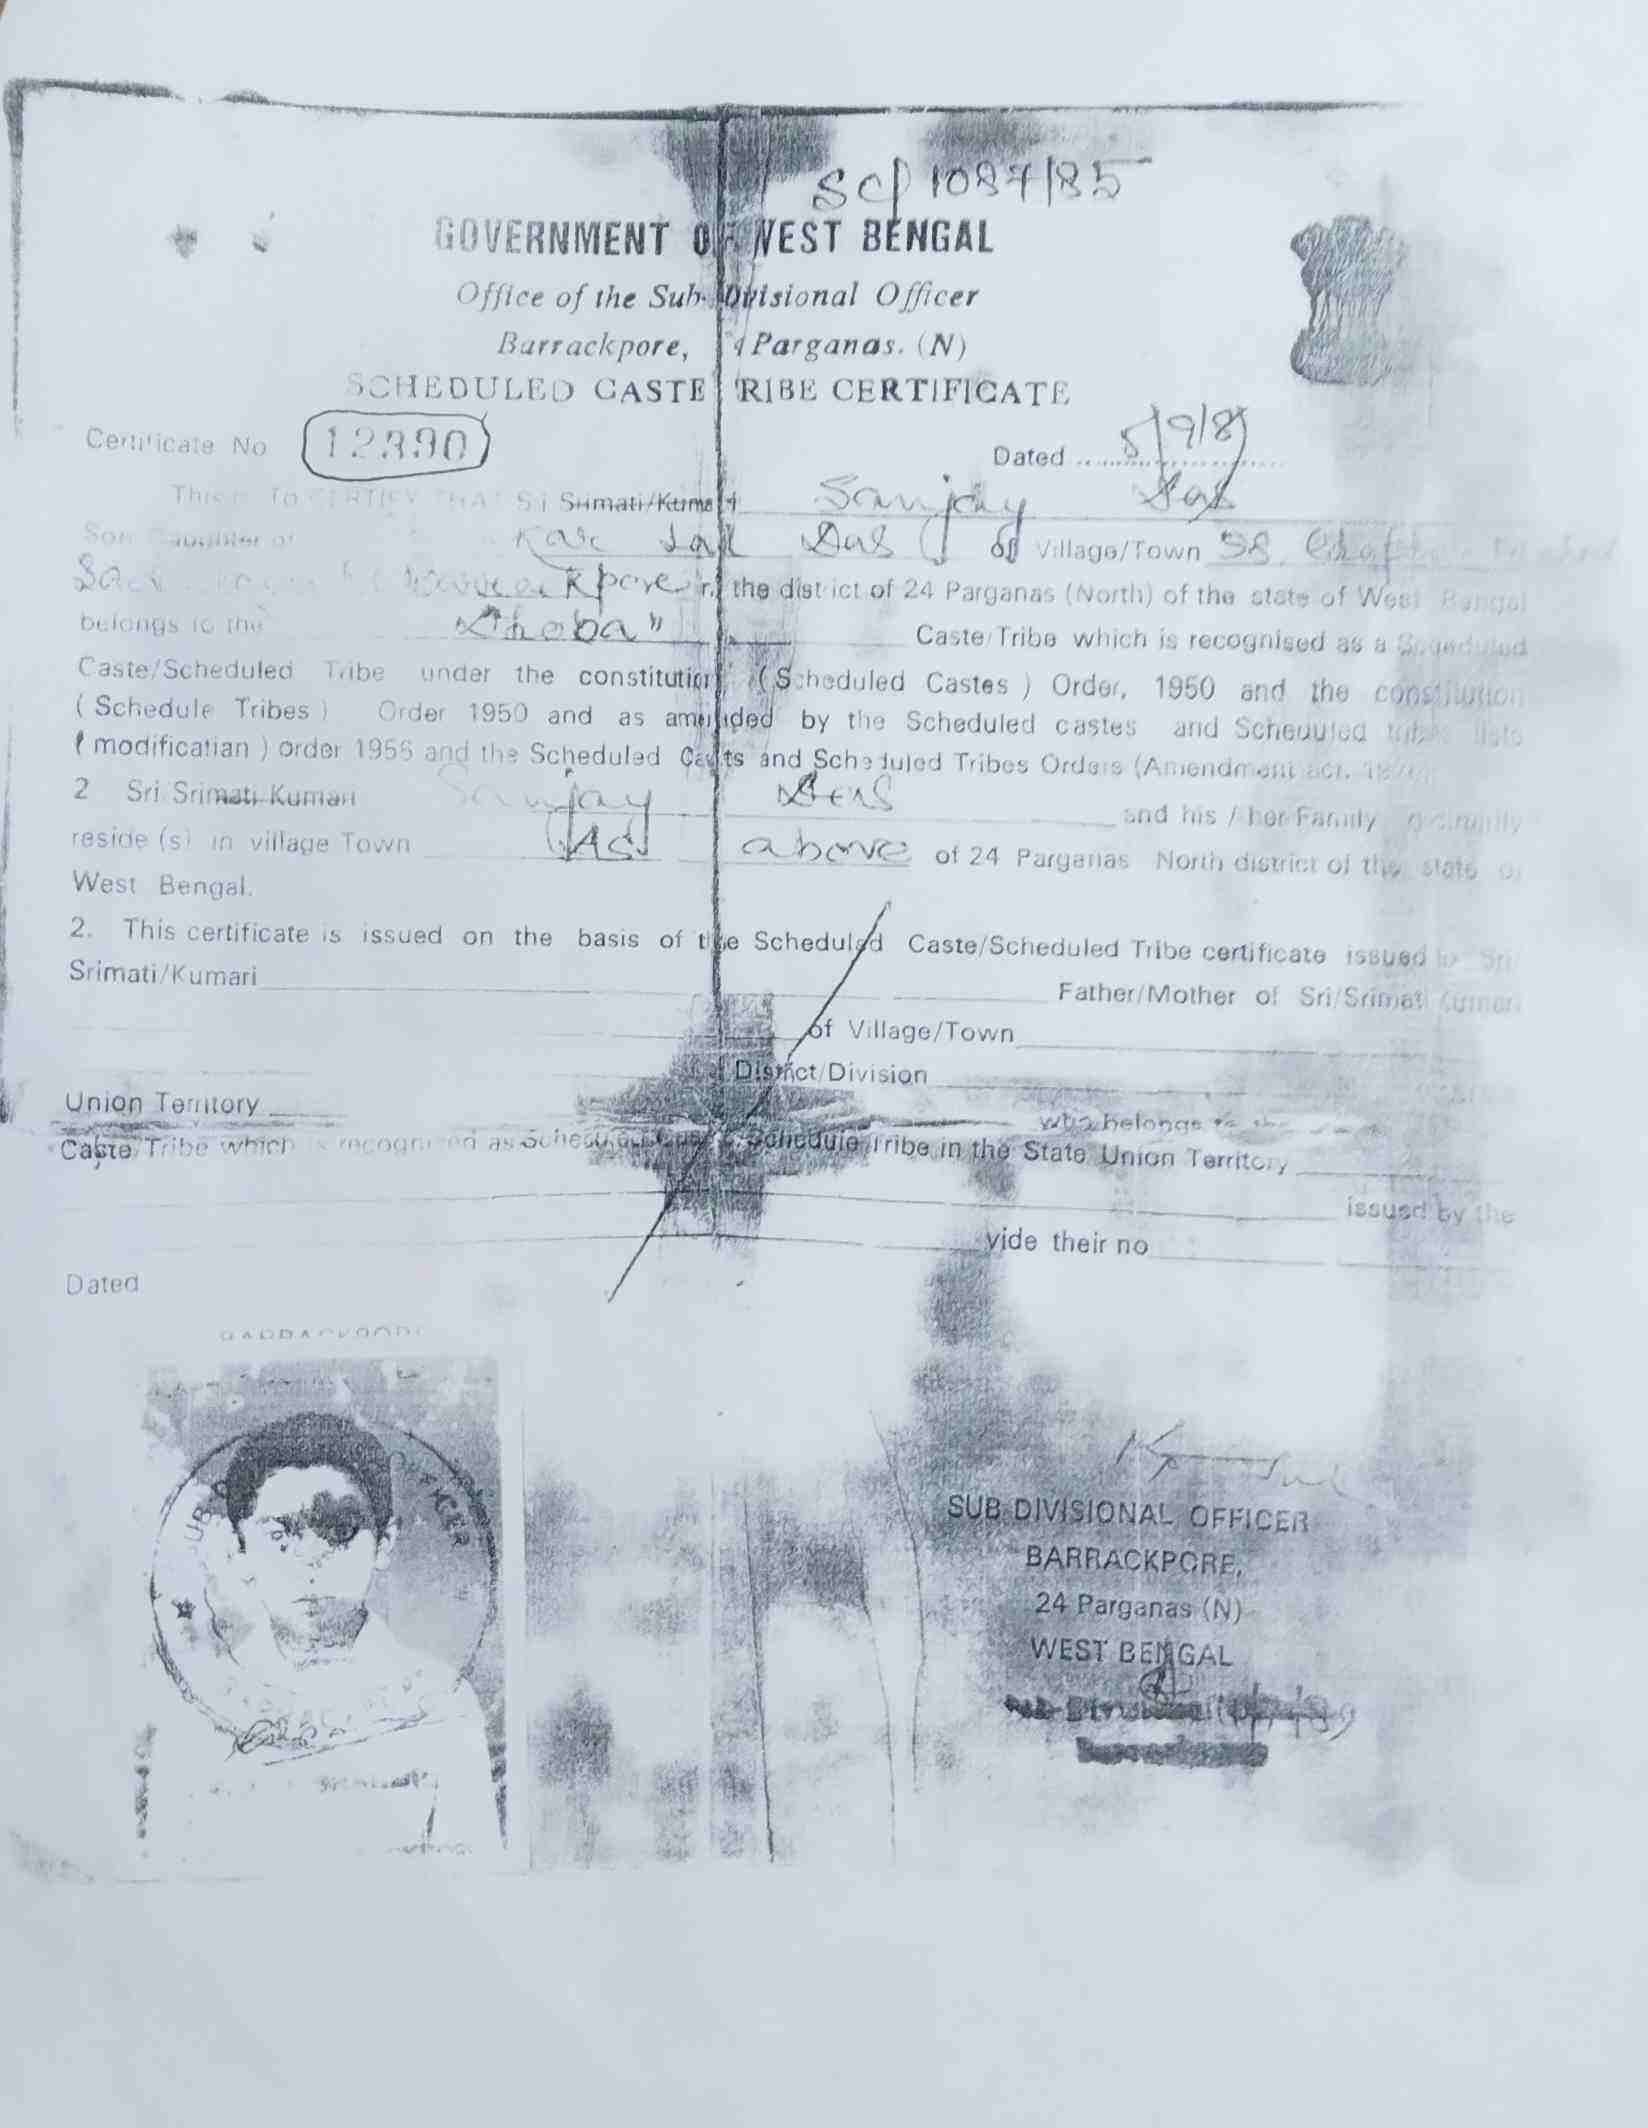 SC/1087/85
GOVERNMENT OF WEST BENGAL
Office of the Sub-Divisional Officer
Barrackpore, 4 Parganas. (N)
SCHEDULED CASTE TRIBE CERTIFICATE
Certificate No 12390
Dated 5/9/89
This is TO CERTIFY THAT Sri Srimati/Kumari Sanjay Das
Son Daughter of Das of Village/Town 58,
Barrackpore in the district of 24 Parganas (North) of the state of West Bengal
belongs to the "Dhoba" Caste/Tribe which is recognised as a Scheduled
Caste/Scheduled Tribe under the constitution (Scheduled Castes ) Order, 1950 and the constitution
( Schedule Tribes ) Order 1950 and as amended by the Scheduled castes and Scheduled tribes lists
( modificatian ) order 1956 and the Scheduled Casts and Scheduled Tribes Orders (Amendment act,
2 Sri Srimati Kumari Sanjay Das and his / her Family ordinarily
reside (s) in village Town As above of 24 Parganas North district of the state of
West Bengal.
2. This certificate is issued on the basis of the Scheduled Caste/Scheduled Tribe certificate issued to Sri
Srimati/Kumari Father/Mother of Sri/Srimati Kumari
of Village/Town
District/Division
Union Territory who belongs to the
Caste/Tribe which is recognised as Scheduled Caste Schedule Tribe in the State Union Territory
issued by the
vide their no
Dated
SUB DIVISIONAL OFFICER
BARRACKPORE,
24 Parganas (N)
WEST BENGAL